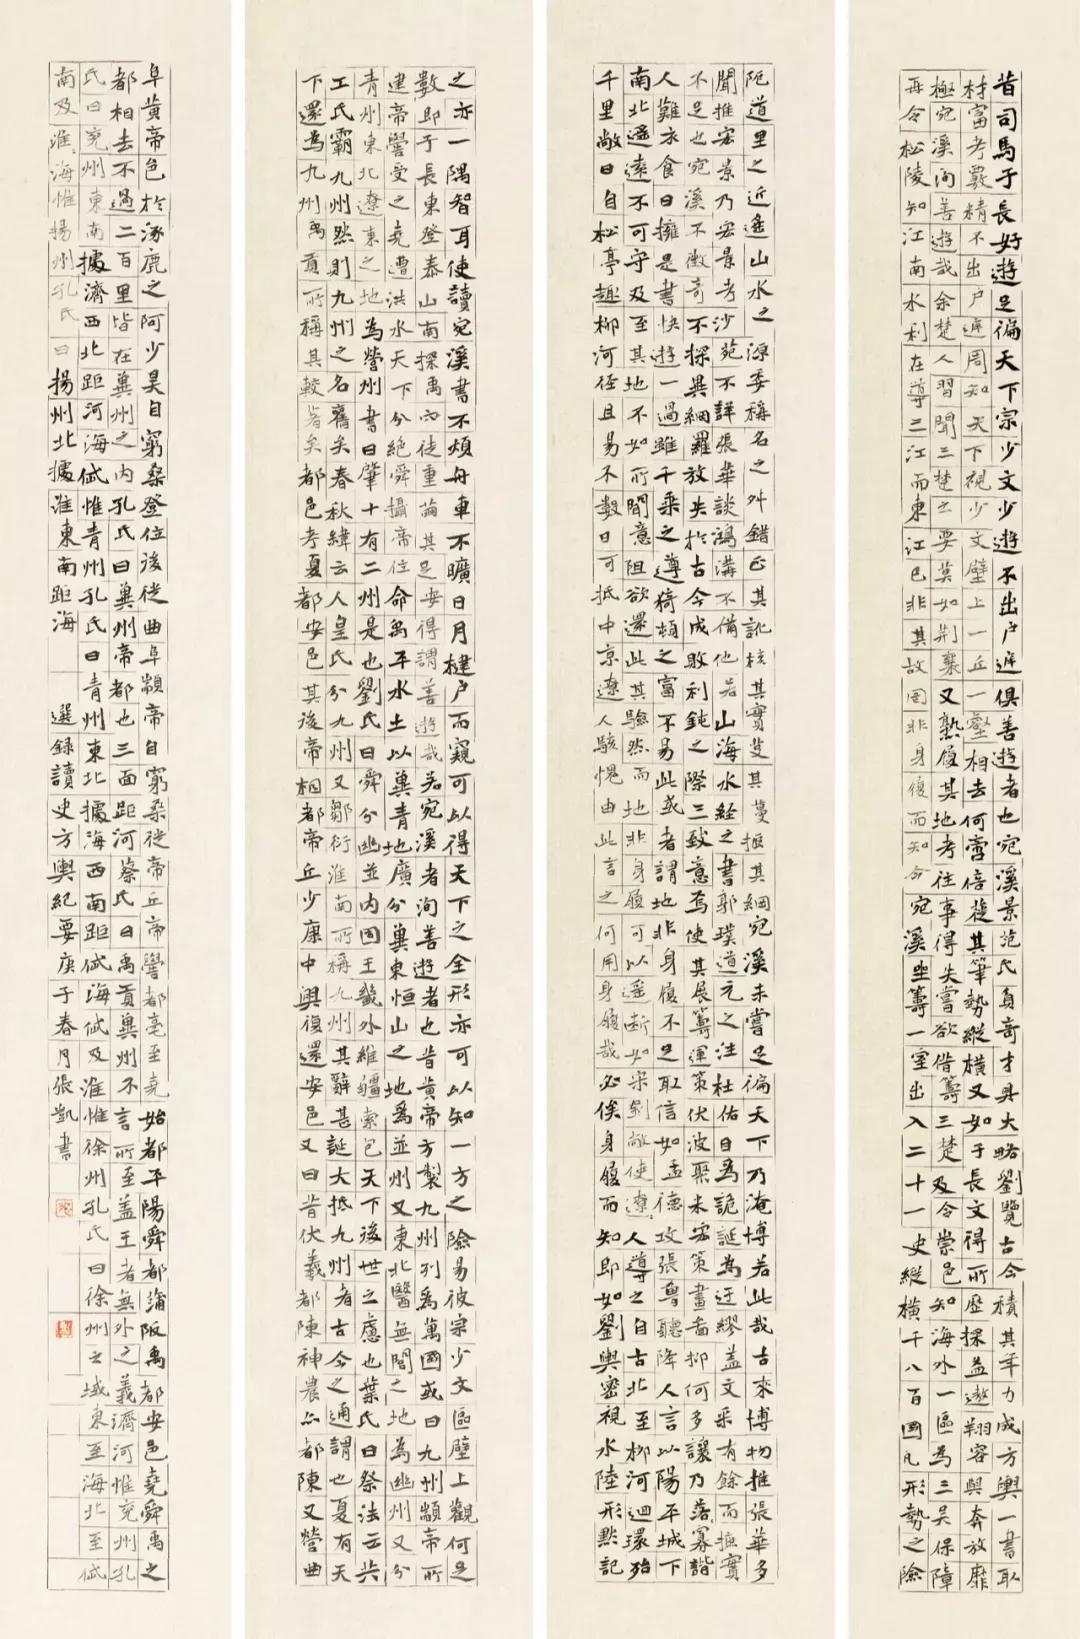 昔司馬子長好遊足徧天下宗少文少遊不出户遅俱善遊者也宛溪景范氏負奇才具大略劉覽古今積其年力成方輿一書取
材富考覈精不出户遅周知天下視少文壁上一丘一壑相去何啻倍蓰其筆勢縱橫又如子長文得所歷探益遨翔容與奔放靡
極宛溪洵善遊哉余楚人習聞三楚之要莫如荆襄又熟履其地考往事得失嘗欲借籌三楚及令崇邑知海外一區為三吴保障
再令松陵知江南水利在導三江而東江已非其故因非身履而知今宛溪坐籌一室出入二十一史縱橫千八百國凡形勢之險
阨道里之近遥山水之源委稱名之舛錯正其訛核其實芟其蔓振其綱宛溪未嘗足徧天下乃淹博若此哉古來博物推張華多
聞推宏景乃宏景考沙苑不詳張華談鴻溝不備他若山海水經之書郭璞道元之注杜佑目為詭誕為迂繆盖文采有餘而摭實
不足也宛溪不徵奇不探異綱羅放失於古今成敗利鈍之際三致意焉使其展籌運策伏波聚米宏策畫畨抑何多讓乃落寡諧
人難衣食日擁是書快遊一過雖千乘之尊猗頓之富不易此或者謂地非身履不足取信如孟德攻張魯聽降人言以陽平城下
南北遥遠不可守及至其地不如所聞意阻欲還此其驗然而地非身履可以遥斷如宋劉敞使遼人導之自古北至柳河迴環殆
千里敞曰自松亭趣柳河徑且易不數日可抵中京遼人駭愧由此言之何用身履哉必俟身履而知即如劉輿密視水陸形默記
之亦一隅智耳使讀宛溪書不煩舟車不曠日月楗户而窺可以得天下之全形亦可以知一方之險易彼宗少文區壁上觀何足
數即子長東登泰山南探禹穴徒重繭其足安得謂善遊哉若宛溪者洵善遊者也昔黄帝方製九州列為萬國或曰九州顓帝所
建帝嚳受之堯遭洪水天下分絶舜攝帝位命禹平水土以冀青地廣分冀東恒山之地為並州又東北醫無閭之地為幽州又分
青州東北遼東之地為營州書曰肇十有二州是也劉氏曰舜分幽並内固王畿外維疆索包天下後世之慮也葉氏曰祭法云共
工氏霸九州然則九州之名舊矣春秋緯云人皇氏分九州又鄒衍淮南所稱九州其辭甚誕大抵九州者古今之通謂也夏有天
下還為九州禹貢所稱其較著矣都邑考夏都安邑其後帝相都帝丘少康中興復還安邑又曰昔伏羲都陳神農亦都陳又營曲
阜黄帝邑於涿鹿之阿少昊自窮桑登位後徙曲阜顓帝自窮桑徙帝丘帝嚳都亳至堯始都平陽舜都蒲阪禹都安邑堯舜禹之
都相去不過二百里皆在冀州之内孔氏曰冀州帝都也三面距河蔡氏曰禹貢冀州不言所至盖王者無外之義濟河惟兖州孔
氏曰兖州東南據濟西北距河海岱惟青州孔氏曰青州東北據海西南距岱海岱及淮惟徐州孔氏曰徐州之域東至海北至岱
南及淮淮海惟揚州孔氏曰揚州北據淮東南距海
選録讀史方輿紀要庚子春月張凱書